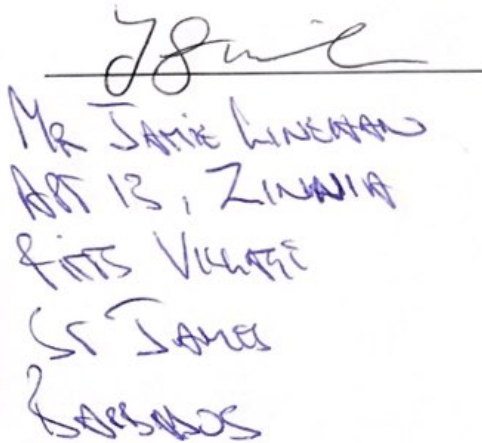 Mr Jamie Linehan
Apt 13, Zinnia
Fitts Village
St James
Barbados